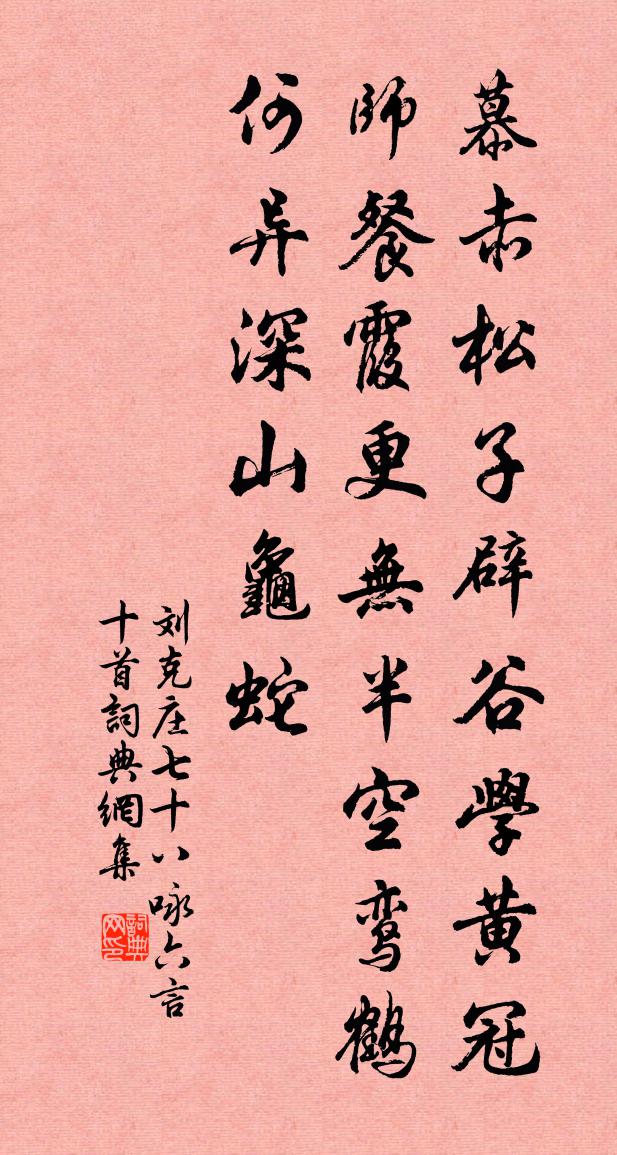 慕赤松子辟谷學黄冠
師餐霞更無半空鸾鶴
何异深山龜蛇
刘克庄七十八咏六言
十首詞典網集
詞典網印